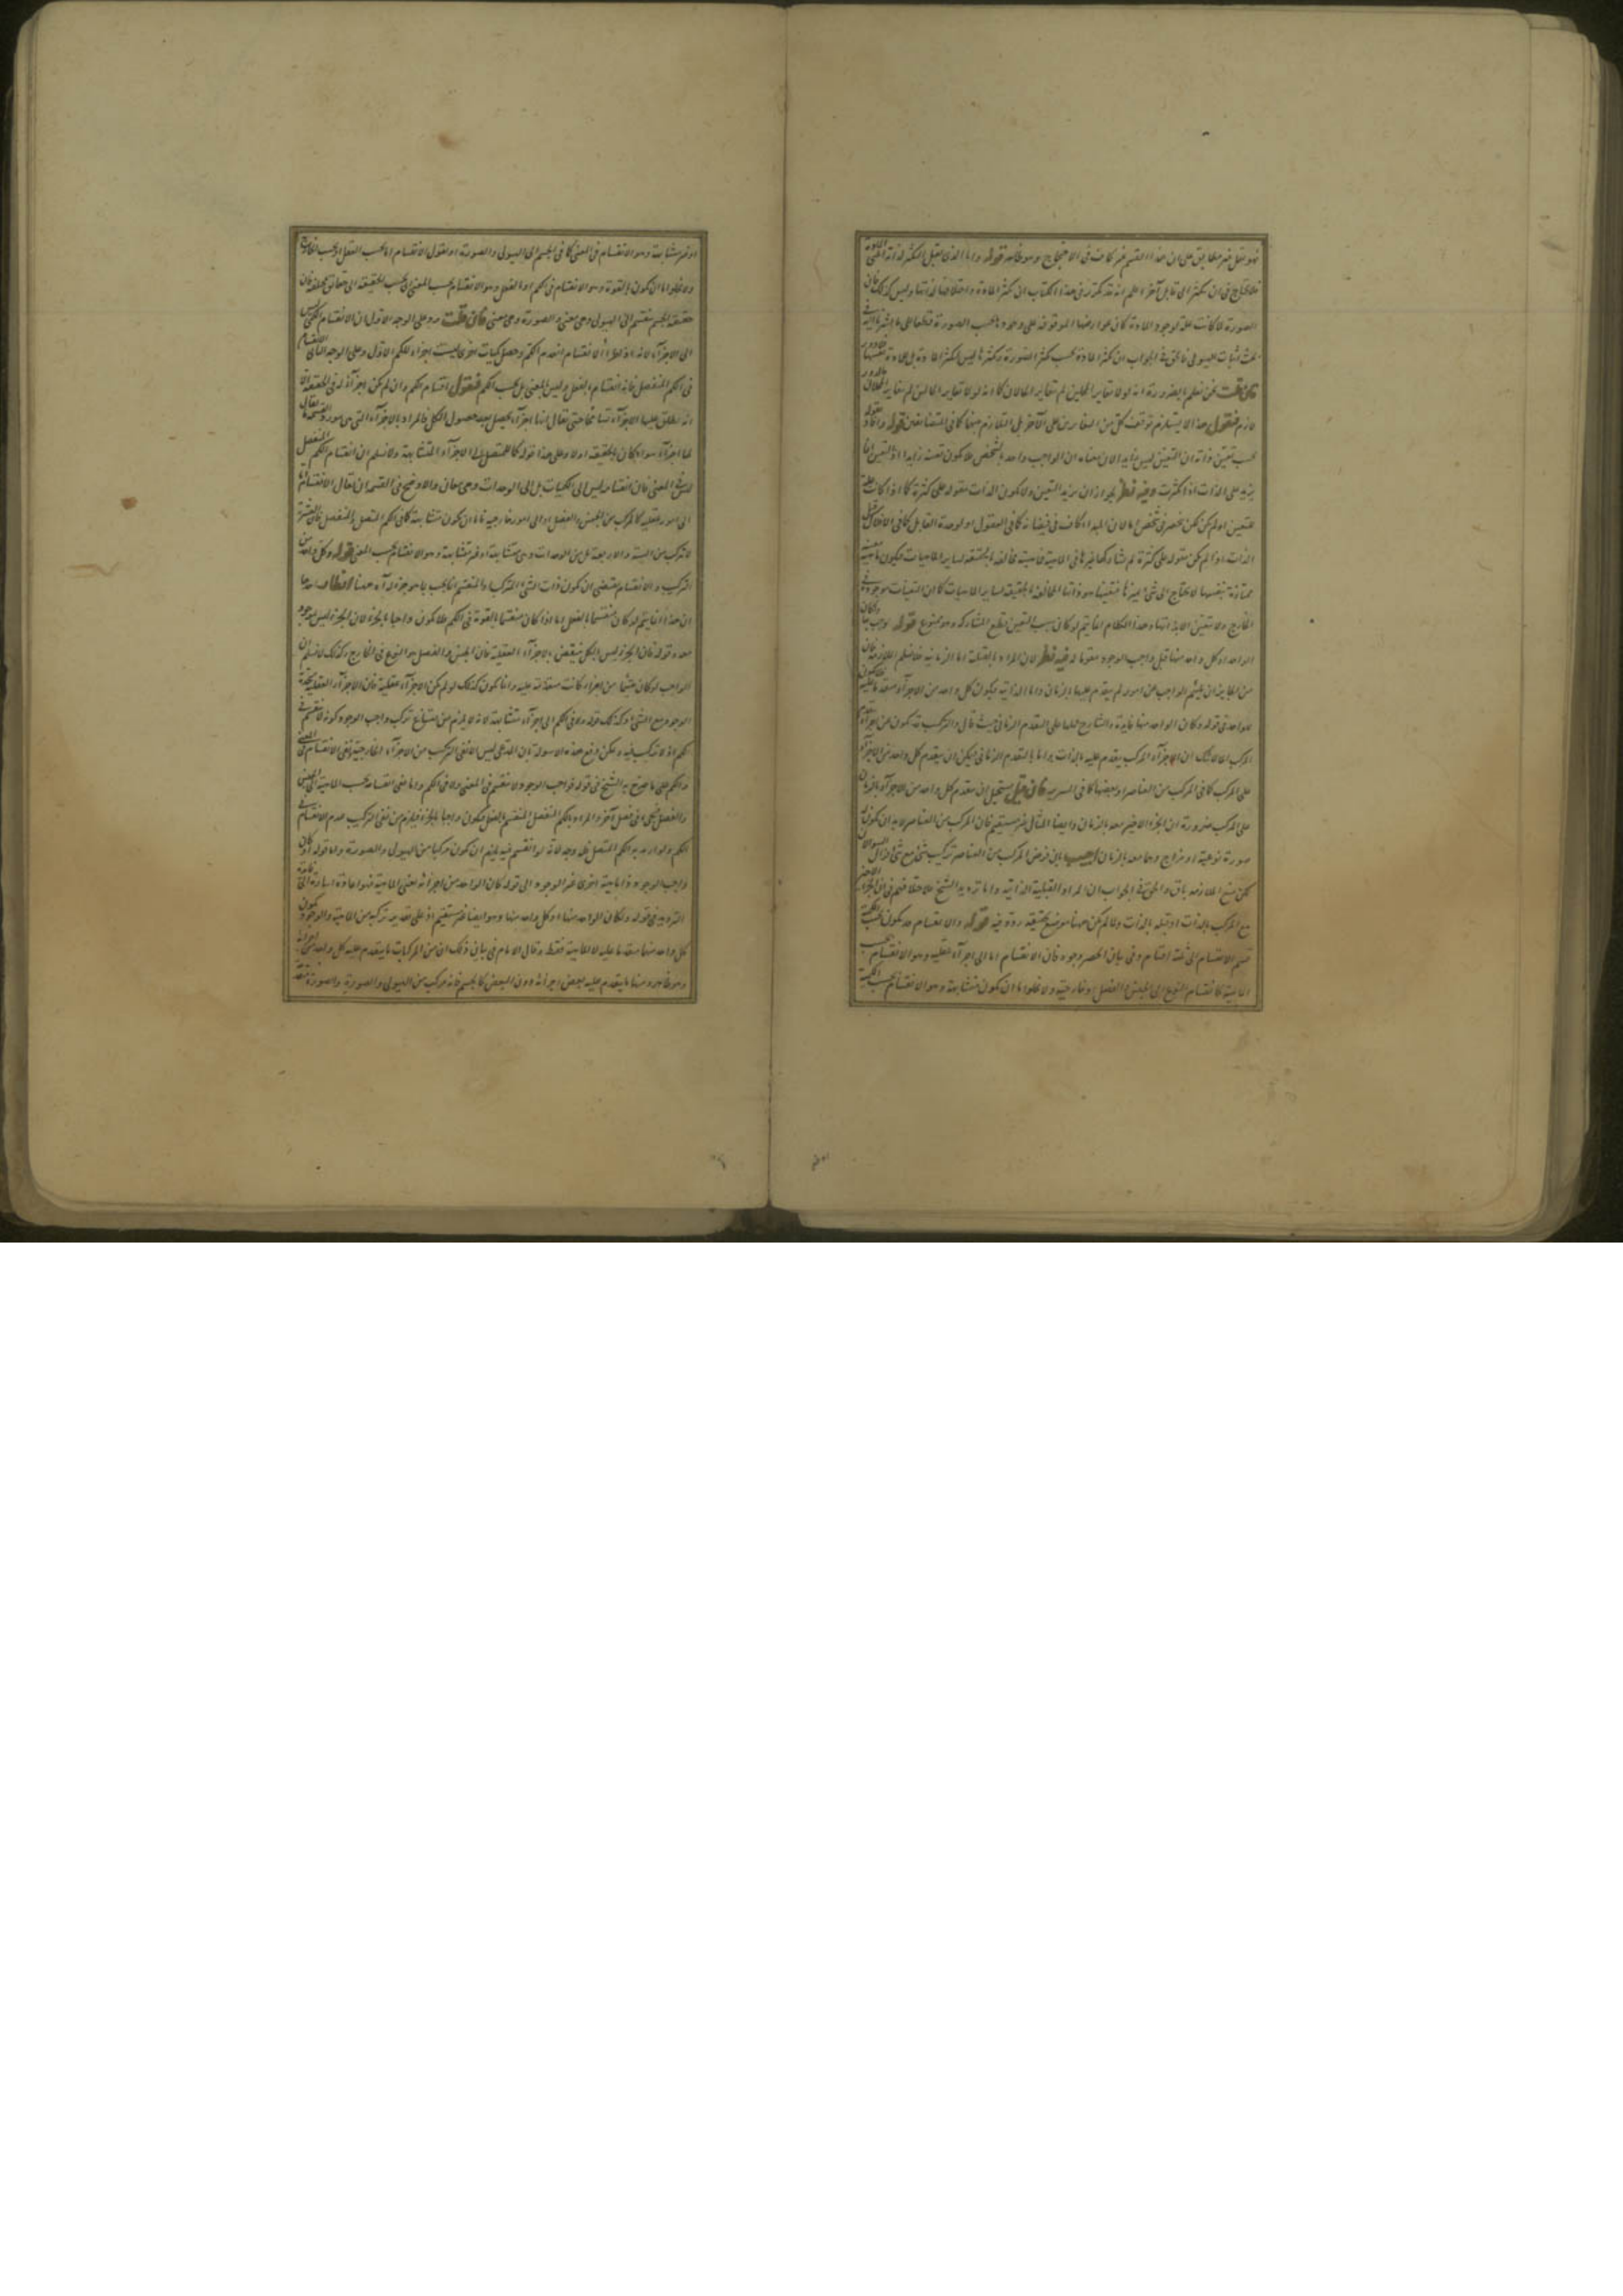 فهو نقل غير مطابق على ان هذا القسم غير كاف فى الاحتجاج وهو ظاهر قوله واما الذى يقبل التكثر لذاته اعنى المادة
فلا يحتاج فى ان يتكثر الى قابل آخر اعلم انه قد تكرر فى هذا الكتاب ان تكثر المادة واختلافها لذاتها وليس كذلك فان
الصورة لما كانت علة لوجود المادة كان عوارضها الموقوفة على وجودها بحسب الصورة
بحث اثبات الهيولى فالحق فى الجواب ان تكثر المادة بحسب تكثر الصورة وتكثرها ليس لتكثر المادة بل لمادة بنفسها
فان قلت نحن نعلم بالضرورة انه لولا تغاير المحلين لم تغاير الحالان كما انه لولا تغاير الحالين لم تغاير المحلان
فنقول هذا لا يستلزم توقف كل من التغايرين على الآخر بل التلازم بينهما كافى المتضايفين قوله
بحسب تعين ذاته ان التعين ليس بزايد لان معناه ان الواجب واحد بالشخص فلا يكون تعينه زايدا اذ التعين انما
يزيد على الذات اذا كثرت وفيه نظر لجواز ان يزيد التعين ولا يكون الذات مقولة على كثرة كما اذا كانت علة
الذات اذا لم يكن مقولة على كثرة لم تشارك غيرها فى الماهية فماهيته مخالفة بالحقيقة لساير الماهيات فيكون ماهيته
ممتازة بنفسها لا يحتاج الى شئ يميزها فتعينها هو ذاتها المخالفة بالحقيقة لساير الماهيات
الخارج ولا تعين الا بذاتها وهذا الكلام انما يتم لو كان سبب التعين قطع المشاركة وهو ممنوع قوله
الواحد او كل واحد منها قبل واجب الوجود مقوما له فيه نظر لان المراد بالقبلية اما الزمانية فلا نسلم الملازمة فان
من الجايز ان يلتئم الواجب من امور لم يتقدم عليها بالزمان واما الذاتية فيكون كل واحد من الاجزاء متقدما عليه
للواحد فى قوله وكان الواحد منها فايدة والشارح حملها على التقدم الزمانى حيث قال والتركب قد يكون من اجزاء
المركب لا شك ان الاجزاء المركب يتقدم عليه بالذات واما بالتقدم الزمانى فيمكن ان يتقدم كل واحد من الاجزاء
على المركب كما فى المركب من العناصر او بعضها كما فى السرير فان قيل يستحيل ان يتقدم كل واحد من الاجزاء بالزمان
على المركب ضرورة ان الجزء الاخير معه بالزمان وايضا المثال غير مستقيم فان المركب من العناصر لابد ان يكون
صورة نوعية او مزاج وهما معه بالزمان اجيب بان فرض المركب من العناصر تركيب شئ مع شئ
لكن منع الملازمة باق والحق فى الجواب ان المراد القبلية الذاتية واما ترديد الشيخ
مع المركب بالذات او قبله بالذات ولما لم يكن ههنا موضع تحقيقه ردد فيه قوله والانقسام قد يكون بحسب الكمية
قسم الانقسام الى ثلثة اقسام وفى بيان الحصر وجوه فان الانقسام اما الى اجزاء عقلية وهو الانقسام بحسب
الماهية كانقسام النوع الى الجنس والفصل او خارجية ولا يخلو اما ان يكون متشابهة وهو الانقسام بحسب الكمية
او غير متشابهة وهو الانقسام فى المعنى كما فى الجسم الى الهيولى والصورة او نقول الانقسام اما بحسب العقل او بحسب الخارج
ولا يخلو اما ان يكون بالقوة وهو الانقسام فى الكم او بالفعل وهو الانقسام بحسب المعنى اى بحسب الحقيقة الى حقايق مختلفة فان
حقيقة الجسم تنقسم الى الهيولى وهى معنى والصورة وهى معنى فان قلت يرد على الوجه الاول ان الانقسام الكمى ليس
الى الاجزاء لانه اذا طرأ الانقسام انعدم الكم وحصل كميات اخرى ليست اجزاء للكم الاول وعلى الوجه الثانى الانقسام
فى الكم المنفصل فانه انقسام بالفعل وليس بالمعنى بل بحسب الكم فنقول اقسام الكم وان لم يكن اجزاء له فى الحقيقة الا
انه يطلق عليها الاجزاء تسامحا حتى يقال انها اجزاء يحصل بعد حصول الكل فالمراد بالاجزاء التى هى مورد القسمة ما يقال
لها اجزاء سواء كان بالحقيقة او لا وعلى هذا قوله كما للمتصل الى الاجزاء المتشابهة ولا نسلم ان انقسام الكم المنفصل
ليس فى المعنى فان انقسامه ليس الى الكميات بل الى الوحدات وهى معان والاوضح فى القسمة ان يقال الانقسام اما
الى امور عقلية كالمركب من الجنس والفصل او الى امور خارجية فاما ان يكون متشابهة كما فى الكم المتصل والمنفصل فان العشرة
لا تتركب من الستة والاربعة بل من الوحدات وهى متشابهة او غير متشابهة وهو الانقسام بحسب المعنى قوله وكل واحد من
التركب والانقسام يقتضى ان يكون ذات الشئ المتركب والمنقسم انما يجب بما هو جزء له آه ههنا انظار احدها
ان هذا انما يتم لو كان منقسما بالفعل اما اذا كان منقسما بالقوة فى الكم فلا يكون واجبا بالجزء لان الجزء ليس بموجود
معه وقوله فان الجزء ليس الكل ينتقض بالاجزاء العقلية فان الجنس والفصل هو النوع فى الخارج وكذلك لا نسلم ان
الواجب لو كان ملتئما من اجزاء كانت متقدمة عليه وانما يكون كذلك لو لم يكن الاجزاء عقلية فان الاجزاء العقلية متحدة
الوجود مع الشئ وكذلك قوله ولا فى الكم الى اجزاء متشابهة لانه لا يلزم من امتناع تركب واجب الوجود كونه لا ينقسم فى
الكم اذ لا تركب فيه ويمكن دفع هذه الاسولة بان المدعى ليس الا نفى التركب من الاجزاء الخارجية ونفى الانقسام فى المعنى
والكم على ما صرح به الشيخ فى قوله فواجب الوجود لا ينقسم فى المعنى ولا فى الكم واما نفى انقسامه بحسب الماهية الى الجنس
والفصل فيجئ فى فصل آخر والمراد بالكم المتصل المنقسم بالفعل فيكون واجبا بالجزء فيلزم من نفى التركيب عدم الانقسام فى
الكم ولو اريد به الكم المتصل فله وجه لانه لو انقسم فيه يلزم ان يكون مركبا من الهيولى والصورة واما قوله او كان
واجب الوجود ذا ماهية اخرى غير الوجود الى قوله كان الواحد من اجزائه اعنى الماهية
الترديد فى قوله ولكان الواحد منها او كل واحد منها وهو ايضا غير مستقيم اذ على تقدير تركبه من الماهية والوجود يكون
كل واحد منها متقدما عليه لا الماهية فقط وقال الامام فى بيانى ذلك ان من المركبات ما يتقدم عليه كل واحد من اجزائه
وهو ظاهر ومنها ما يتقدم عليه بعض اجزائه دون البعض كالجسم فانه مركب من الهيولى والصورة والصورة متقدمة